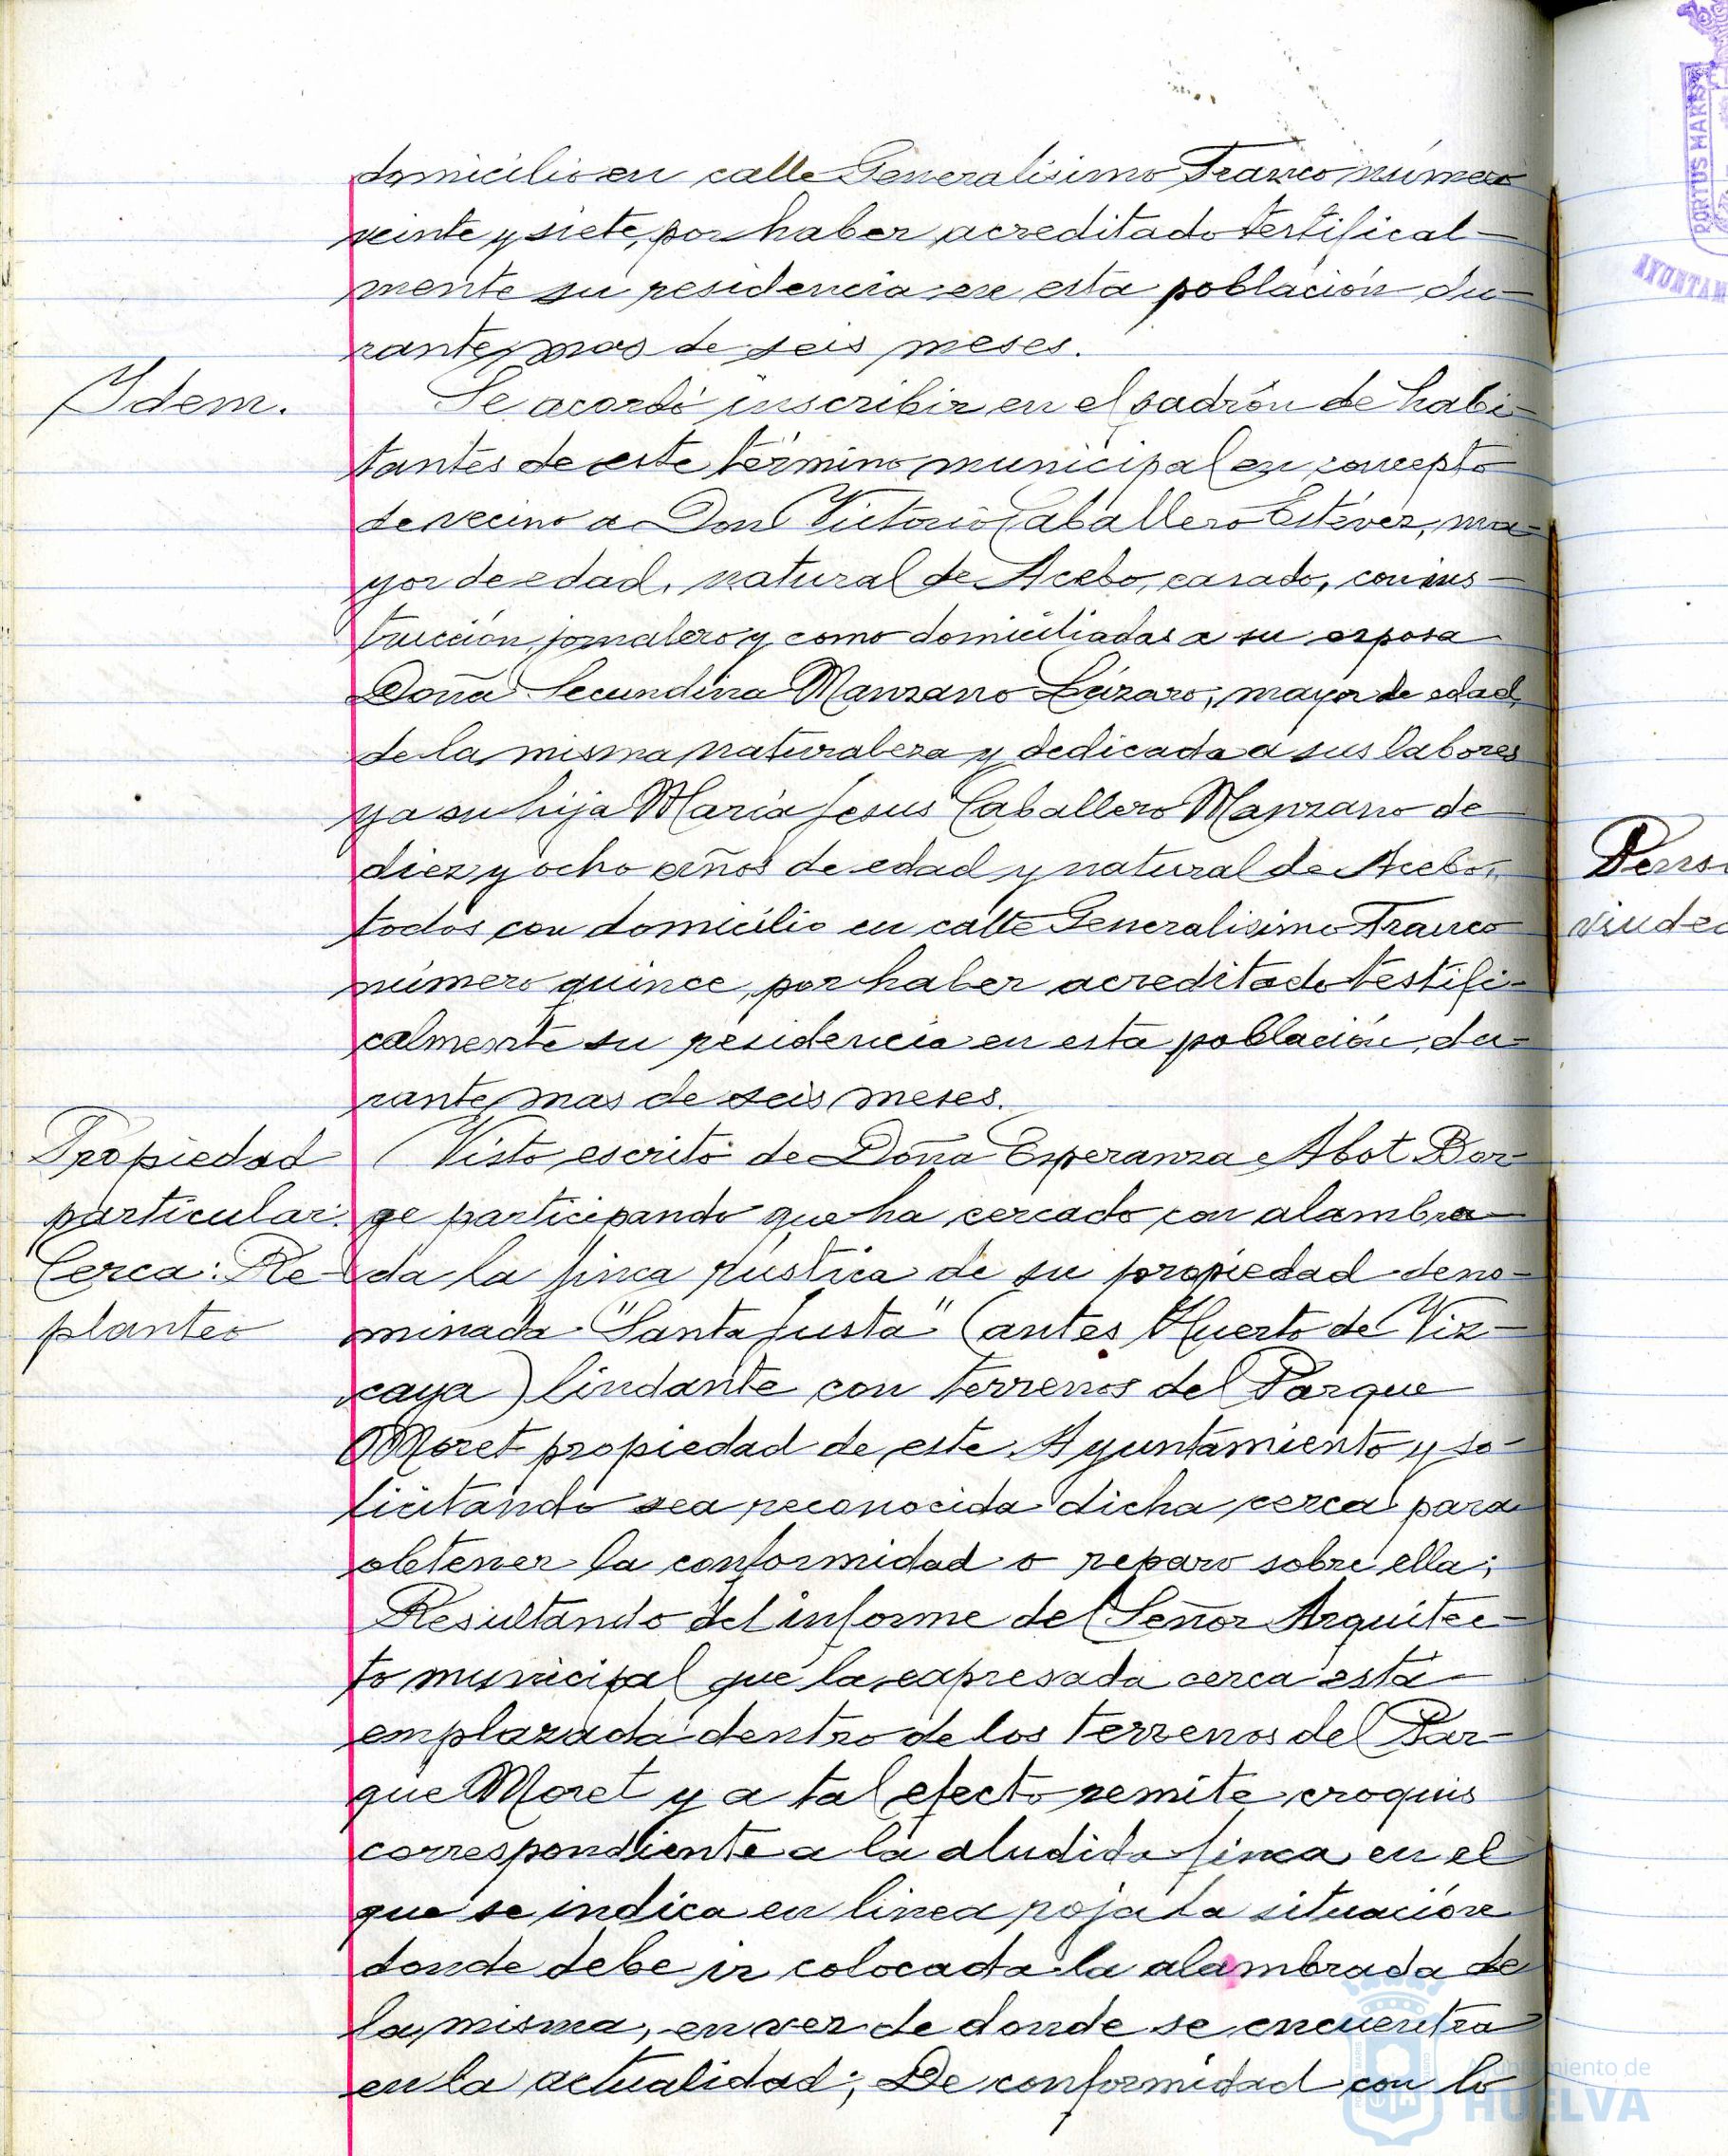 domicilio en calle Generalisimo Franco número
veinte y siete, por haber acreditado testifical-
mente su residencia en esta población du-
rante mas de seis meses.
Idem.
Se acordó inscribir en el padrón de habi-
tantes de este término municipal en concepto
de vecino a Don Victorio Caballero Estévez, ma-
yor de edad, natural de Acebo, casado, con ins-
trucción, jornalero y como domiciliadas a su esposa
Doña Secundina Manzano Lázaro, mayor de edad,
de la misma naturaleza y dedicada a sus labores
y a su hija María Jesus Caballero Manzano de
diez y ocho años de edad y natural de Acebo,
todos con domicilio en calle Generalisimo Franco
número quince, por haber acreditado testifi-
calmente su residencia en esta población, du-
rante mas de seis meses.
Propiedad
particular.
Cerca: Re-
planteo
Visto escrito de Doña Esperanza Abot Bor-
ge participando que ha cercado con alambra-
da la finca rústica de su propiedad deno-
minada "Santa Justa" (antes Huerto de Viz-
caya) lindante con terrenos del Parque
Moret propiedad de este Ayuntamiento y so-
licitando sea reconocida dicha cerca para
obtener la conformidad o reparo sobre ella;
Resultando del informe del Señor Arquitec-
to municipal que la expresada cerca está
emplazada dentro de los terrenos del Par-
que Moret y a tal efecto remite croquis
correspondiente a la aludida finca en el
que se indica en linea roja la situación
donde debe ir colocada la alambrada de
la misma, en vez de donde se encuentra
en la actualidad; De conformidad con lo
PORTUS MARIS
AYUNTAM
Pens
viude
Ayuntamiento de
HUELVA